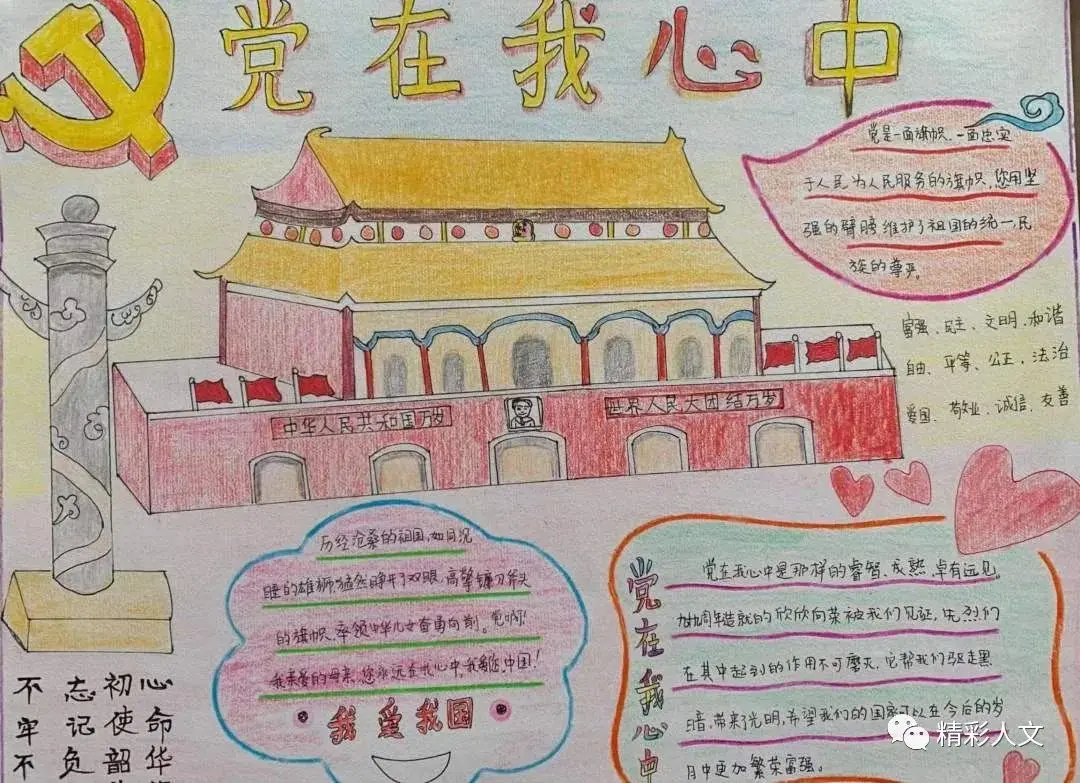 党在我心中
党是一面旗帜,一面忠实
于人民,为人民服务的旗帜,您用坚
强的臂膀维护了祖国的统一,民
族的尊严。
富强、民主、文明、和谐
自由、平等、公正、法治
爱国、敬业、诚信、友善
中华人民共和国万岁
世界人民大团结万岁
历经沧桑的祖国,如同沉
睡的雄狮,猛然睁开了双眼,高擎镰刀斧头
的旗帜,率领中华儿女奋勇向前。党啊!
我亲爱的母亲,您永远在我心中,我爱您,中国!
我爱我国
党在我心中
党在我心中是那样的睿智、成熟、卓有远见。
周年造就的欣欣向荣被我们见证,先烈们
在其中起到的作用不可磨灭,它帮我们驱走黑
暗,带来了光明,希望我们的国家可以在今后的岁
月中更加繁荣富强。
不忘初心
牢记使命
不负韶华
精彩人文